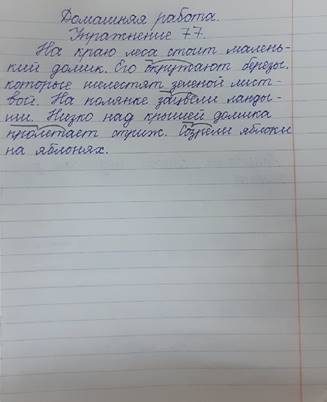 Домашняя работа.
Упражнение 77.
На краю леса стоит малень-
кий домик. Его окружают берёзы,
которые шелестят зеленой лист-
вой. На полянке зацвели ланды-
ши. Низко над крышей домика
пролетает стриж. Созрели яблоки
на яблонях.